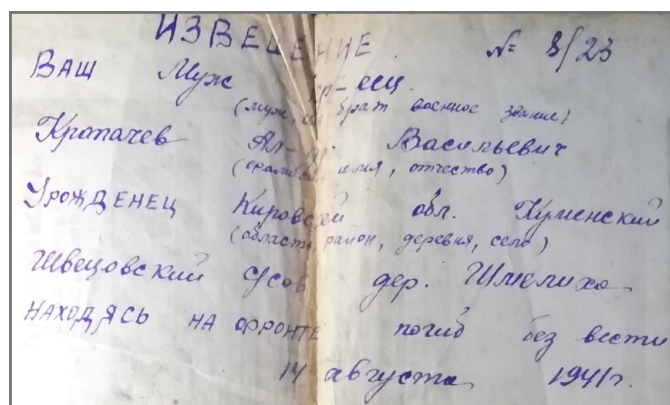 ИЗВЕЩЕНИЕ. № 8/23
ВАШ Муж кр-еец.
(муж, брат военное звание)
Кропачев Васильевич
(фамилия, имя, отчество)
УРОЖДЕНЕЦ Кировской обл. Куменский
(область, район, деревня, село)
Швецовский с/сов дер. Шмелиха
НАХОДЯСЬ НА ФРОНТЕ погиб без вести
14 августа 1941г.